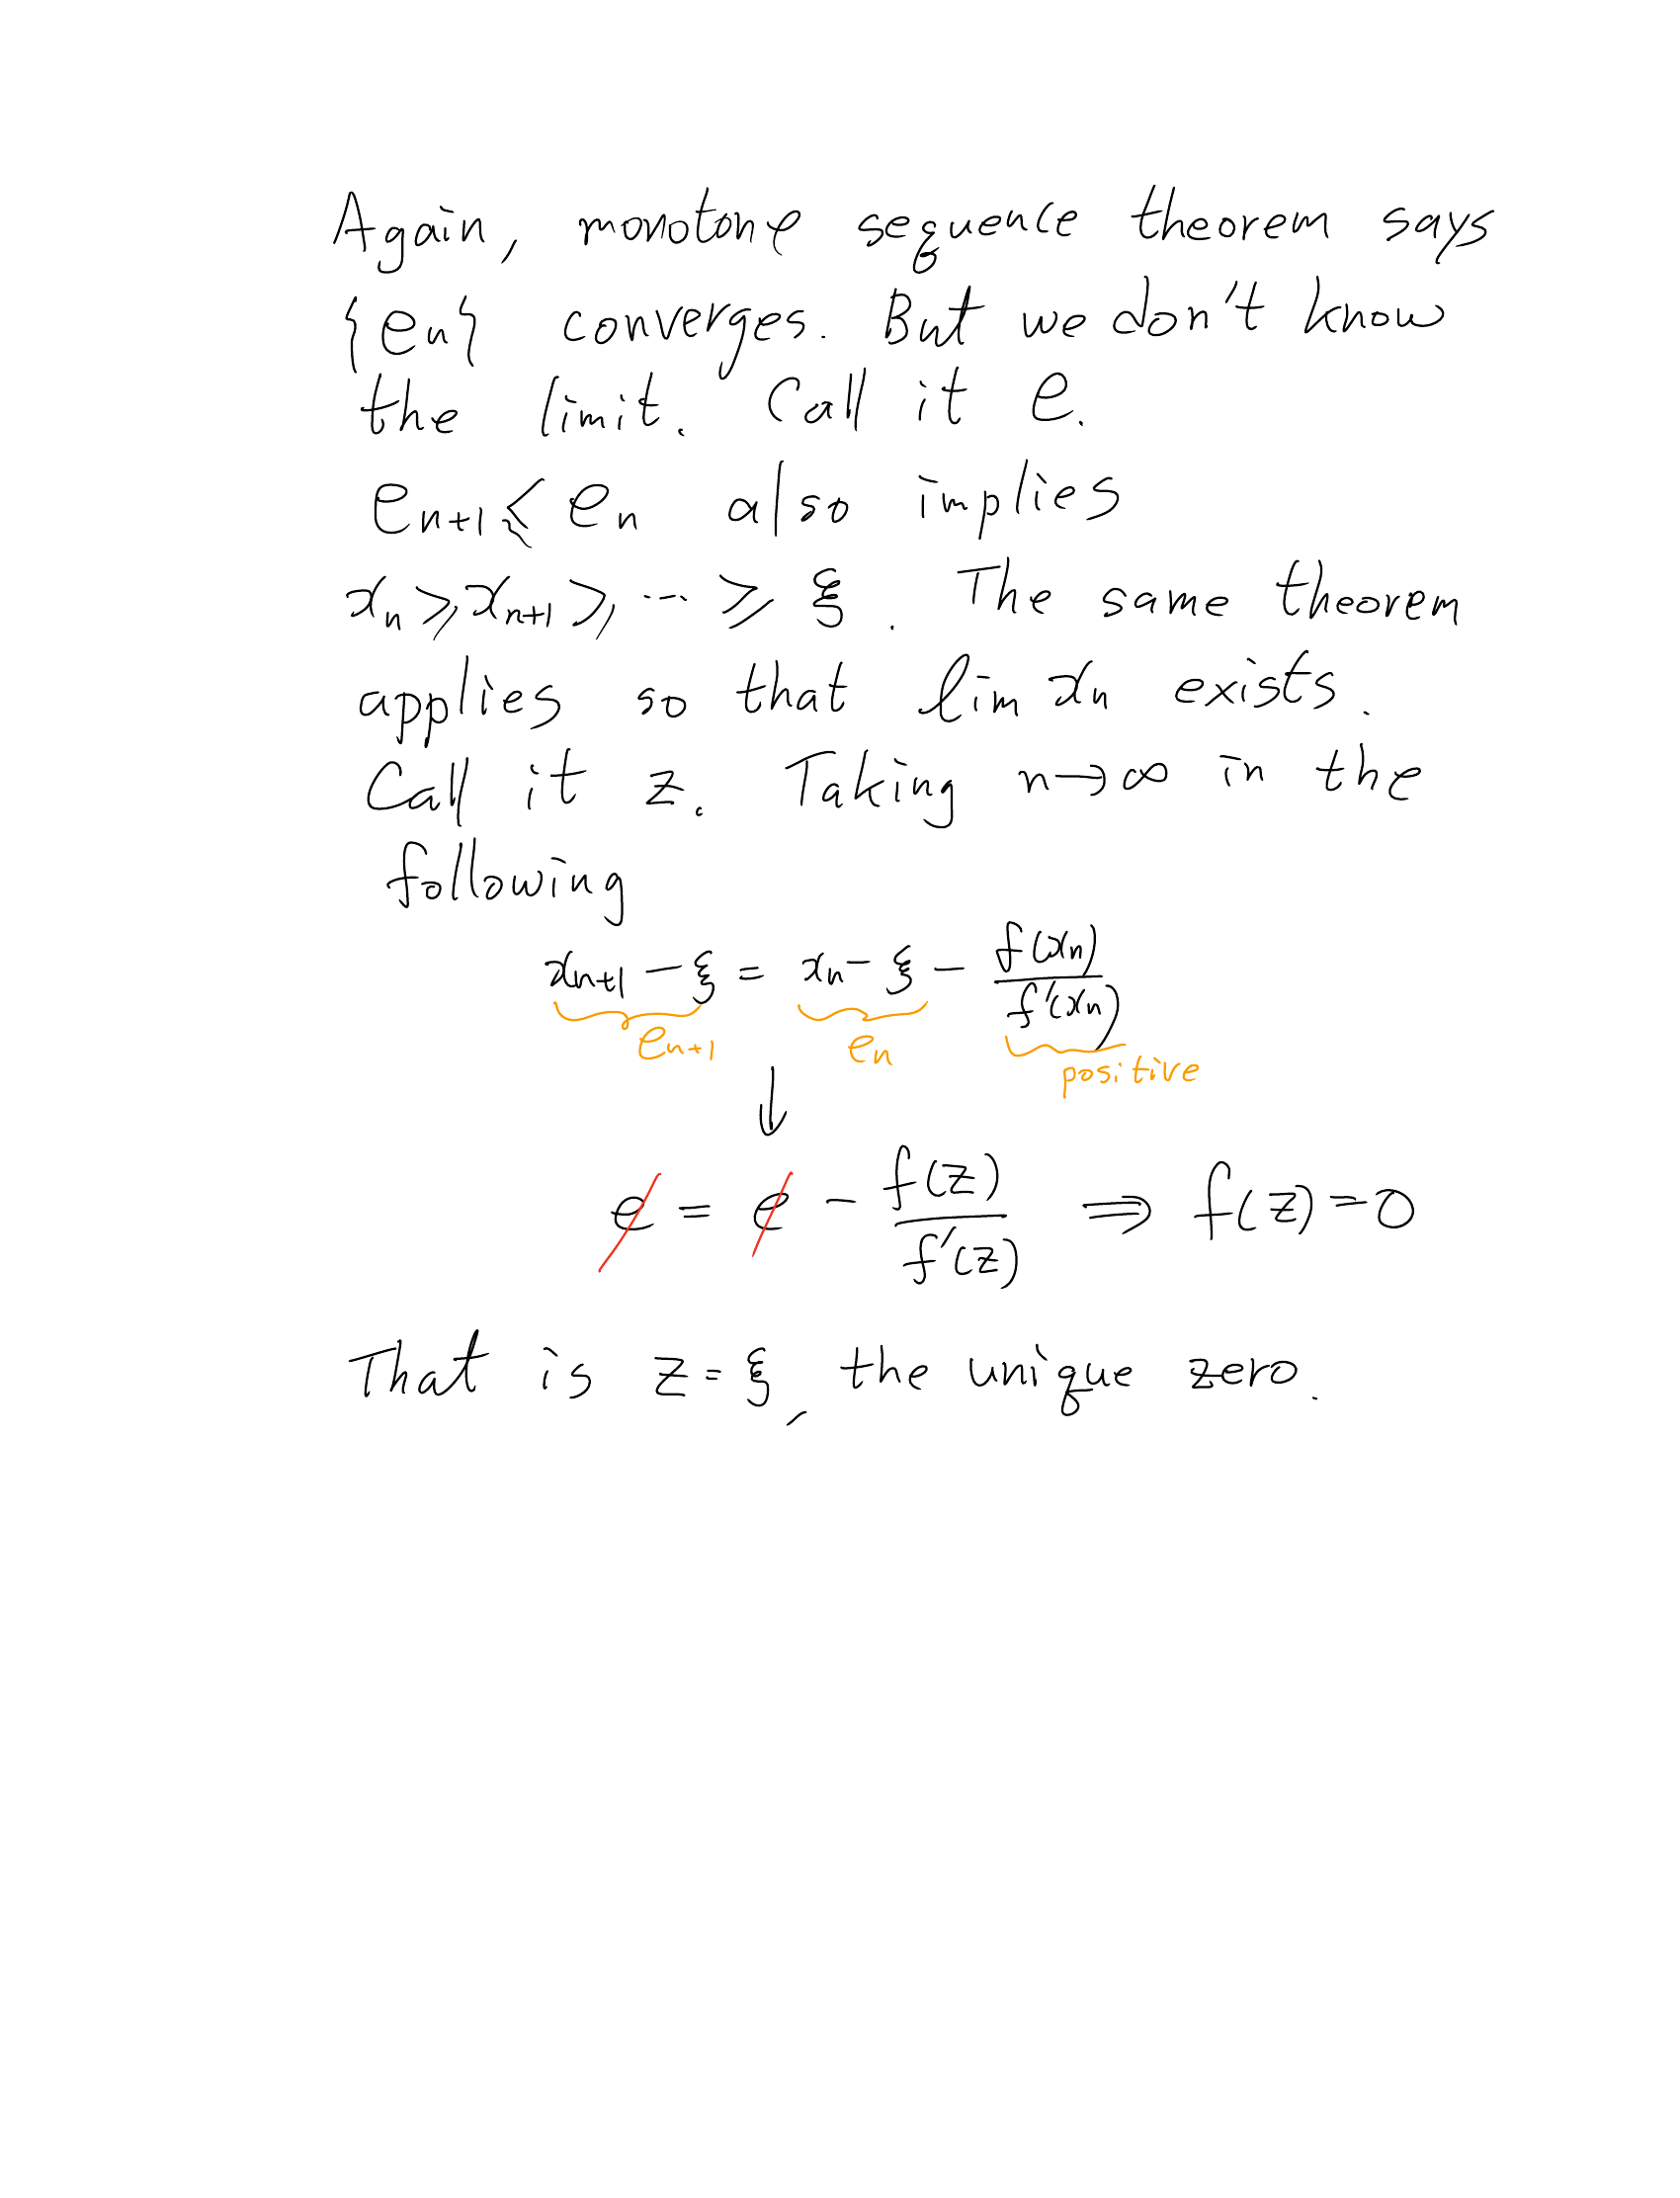 Again, monotone sequence theorem says
{eₙ} converges. But we don't know
the limit. Call it e.
eₙ₊₁ ⩽ eₙ also implies
xₙ ⩾ xₙ₊₁ ⩾ ... ⩾ ξ. The same theorem
applies so that lim xₙ exists.
Call it z. Taking n→∞ in the
following
xₙ₊₁ − ξ = xₙ − ξ − f(xₙ)/f'(xₙ)
eₙ₊₁ eₙ positive
↓
e = e − f(z)/f'(z) ⇒ f(z)=0
That is z = ξ, the unique zero.